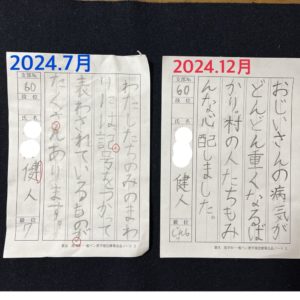 2024.7月
支部No.
60
段位
氏名
健人
級位
7
わたしたちのみのまわ
りには記号をつかって
表わされているものが
たくさんあります。
2024.12月
支部No.
60
段位
氏名
健人
級位
おじいさんの病気が
どんどん重くなるば
かり。村の人たちもみ
んな心配しました。